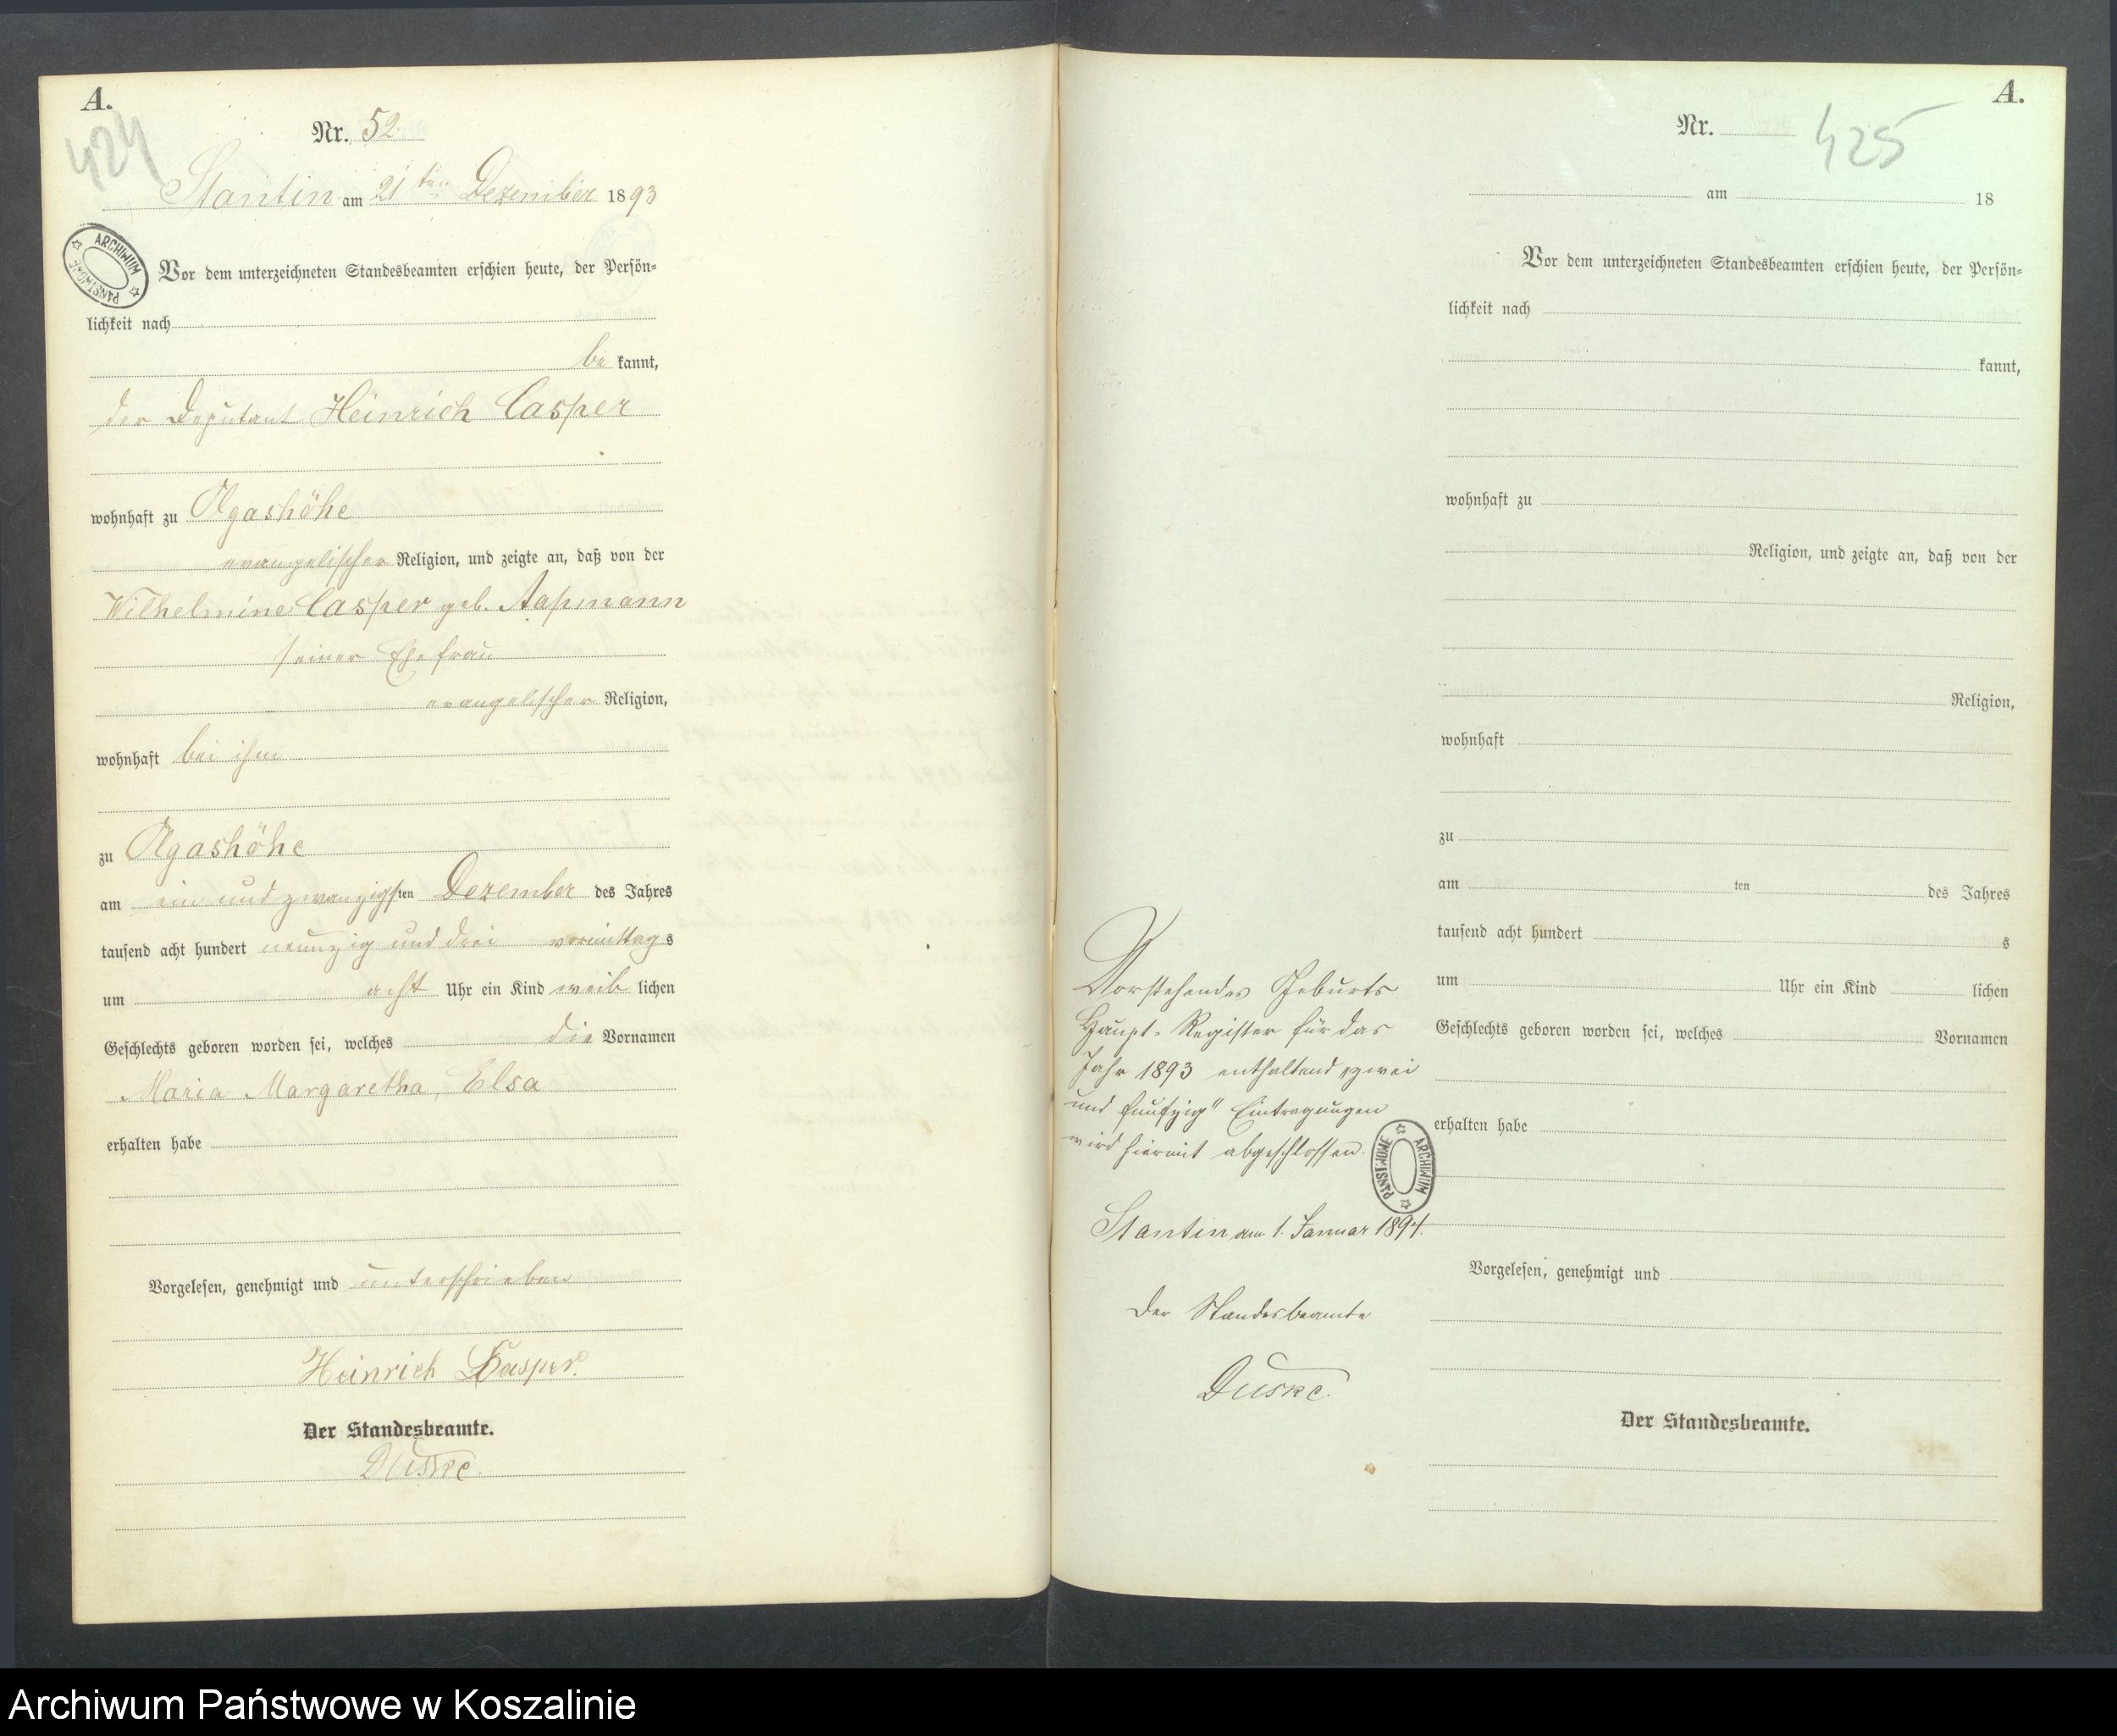 A.
424
Nr. 52
Stantin am 21ten Dezember 1893
ARCHIWUM PAŃSTWOWE
Vor dem unterzeichneten Standesbeamten erschien heute, der Persön=
lichkeit nach
be kannt,
der Deputant Heinrich Casper
wohnhaft zu Olgashöhe
evangelischer Religion, und zeigte an, daß von der
Wilhelmine Casper geb.
seiner Ehefrau
evangelischer Religion,
wohnhaft bei ihm
zu Olgashöhe
am ein und zwanzigsten Dezember des Jahres
tausend acht hundert neunzig und drei vormittags
um acht Uhr ein Kind weib lichen
Geschlechts geboren worden sei, welches die Vornamen
Maria Margaretha, Elsa
erhalten habe
Vorgelesen, genehmigt und unterschrieben
Heinrich Casper.
Der Standesbeamte.
Duske.
A.
Nr.
425
am 18
Vor dem unterzeichneten Standesbeamten erschien heute, der Persön=
lichkeit nach
kannt,
wohnhaft zu
Religion, und zeigte an, daß von der
Religion,
wohnhaft
zu
am ten des Jahres
tausend acht hundert s
um Uhr ein Kind lichen
Geschlechts geboren worden sei, welches Vornamen
erhalten habe
Vorgelesen, genehmigt und
Der Standesbeamte.
Vorstehendes Geburts
Haupt-Register für das
Jahr 1893 enthaltend „zwei
und funfzig" Eintragungen
wird hiermit abgeschlossen.
ARCHIWUM PAŃSTWOWE
Stantin am 1. Januar 1894.
Der Standesbeamte
Duske.
Archiwum Państwowe w Koszalinie